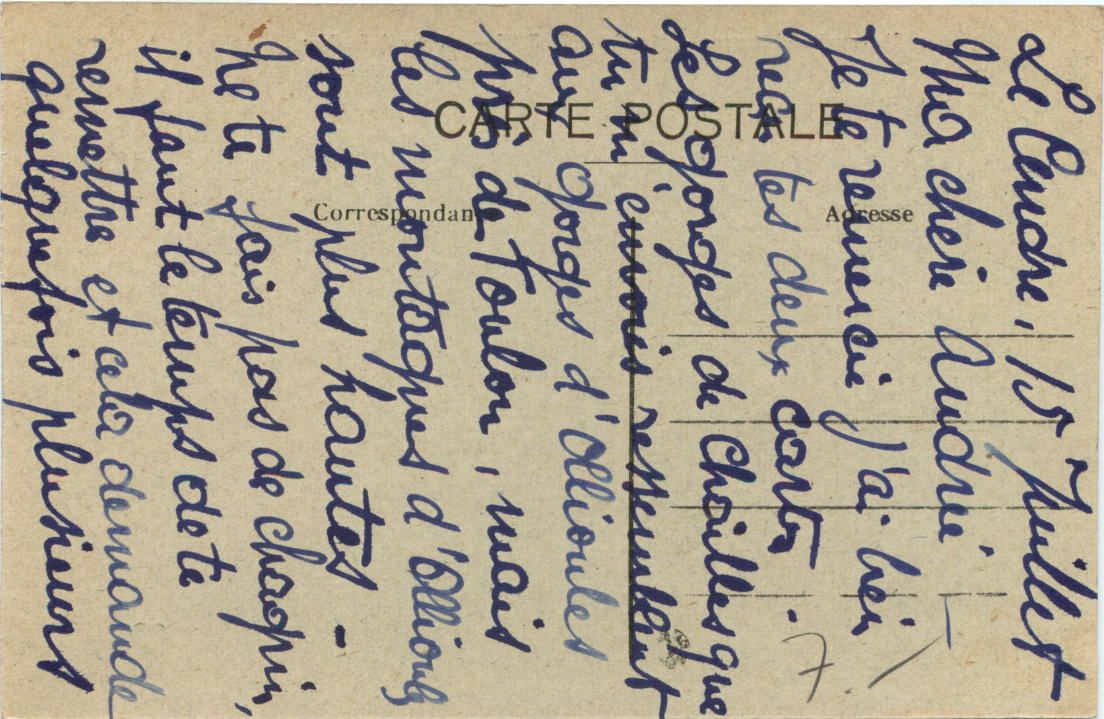 CARTE POSTALE
Correspondance
Adresse
Le Cendre, 15 Juillet
Ma chère Andrée
Je te remercie j'ai bien
reçu tes deux cartes.
Les gorges de Chailles que
tu m'envois ressemblent
aux gorges d'Ollioules
près de Toulon, mais
les montagnes d'Ollioules
sont plus hautes -
Ne te fais pas de chagrin,
il faut le temps de te
remettre et cela demande
quelquefois plusieurs